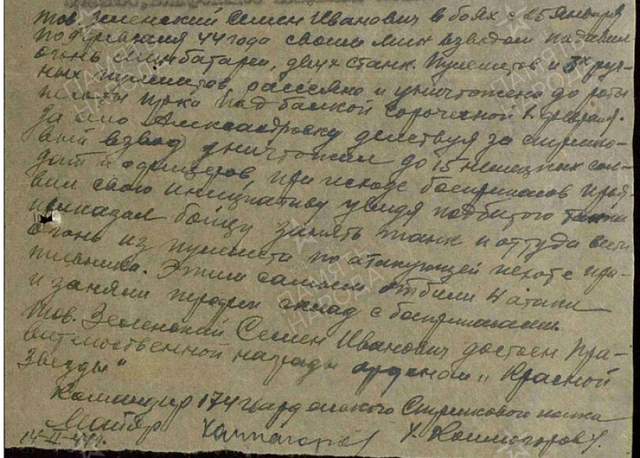 тов. Зеленский Семен Иванович в боях с 25 января
по февраля 44 года своим мин взводом подавил
огонь мин батареи, двух станк. пулеметов и 3х руч-
ных пулеметов, рассеяно и уничтожено до роты
пехоты пр-ка под балкой Сорочиной
за село Александровку действуя за стрелко-
вый взвод уничтожил до 15 немецких сол-
дат и офицеров при исходе боеприпасов проя-
вил свою инициативу увидя подбитого танка
приказал бойцу занять танк и оттуда вести
огонь из пулемета по атакующей пехоте про-
тивника. Этим самым отбили 4 атаки
и заняли трофеи склад с боеприпасами.
Тов. Зеленский Семен Иванович достоен пра-
вительственной награды орденом „Красной
Звезды"
Командир 174 Гвардейского Стрелкового полка
Майор Х. Колмогоров
14-II-44г.
ПАМЯТЬ НАРОДА